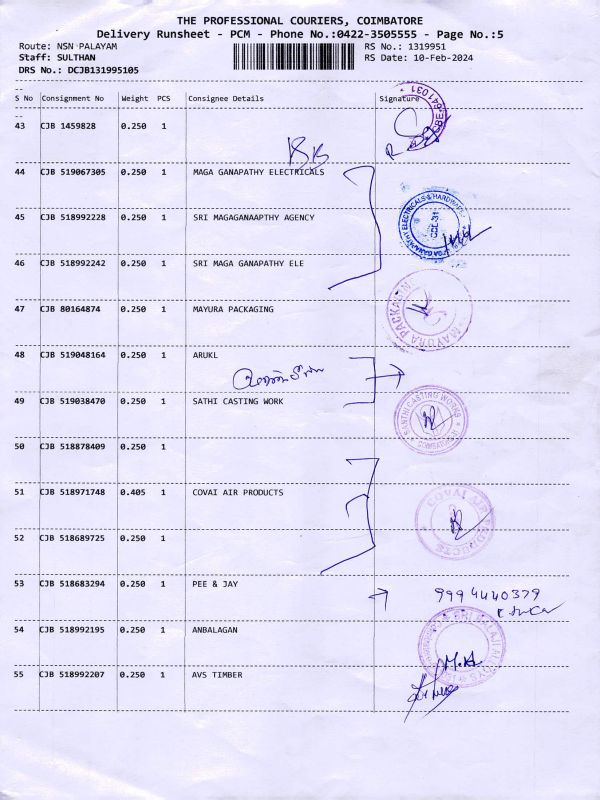 THE PROFESSIONAL COURIERS, COIMBATORE
Delivery Runsheet - PCM - Phone No.:0422-3505555 - Page No.:5
Route: NSN PALAYAM
RS No.: 1319951
Staff: SULTHAN
RS Date: 10-Feb-2024
DRS No.: DCJB131995105
S No Consignment No Weight PCS Consignee Details Signature
43 CJB 1459828 0.250 1
44 CJB 519067305 0.250 1 MAGA GANAPATHY ELECTRICALS
45 CJB 518992228 0.250 1 SRI MAGAGANAAPTHY AGENCY
46 CJB 518992242 0.250 1 SRI MAGA GANAPATHY ELE
47 CJB 80164874 0.250 1 MAYURA PACKAGING
MAYURA PACKAGING
48 CJB 519048164 0.250 1 ARUKL
49 CJB 519038470 0.250 1 SATHI CASTING WORK
SANTHI CASTING WORKS
50 CJB 518878409 0.250 1
51 CJB 518971748 0.405 1 COVAI AIR PRODUCTS
COVAI AIR PRODUCTS
52 CJB 518689725 0.250 1
53 CJB 518683294 0.250 1 PEE & JAY
9994440379
54 CJB 518992195 0.250 1 ANBALAGAN
55 CJB 518992207 0.250 1 AVS TIMBER